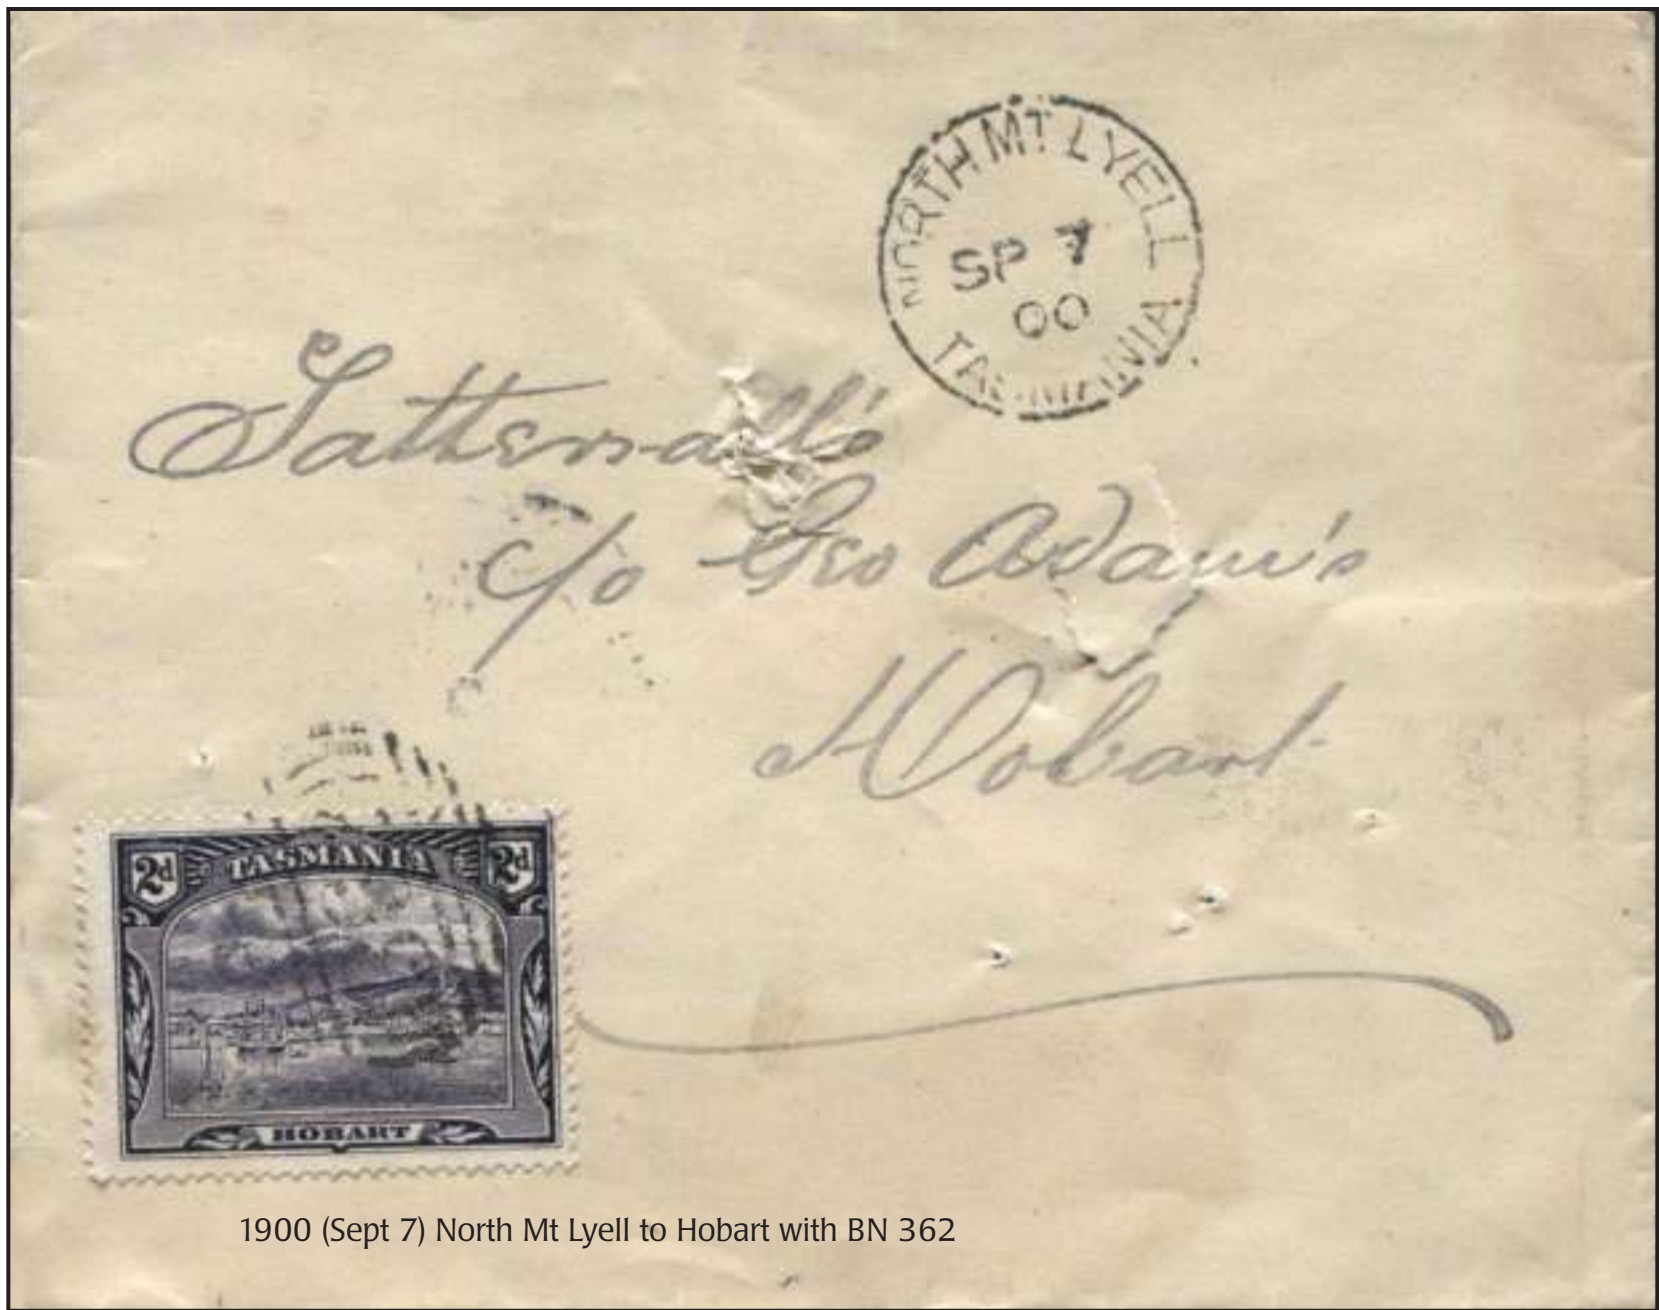 NORTH MT LYELL
SP 7
00
TASMANIA
Tattersall's
c/o Geo Adam's
Hobart
2d TASMANIA 2d
HOBART
1900 (Sept 7) North Mt Lyell to Hobart with BN 362